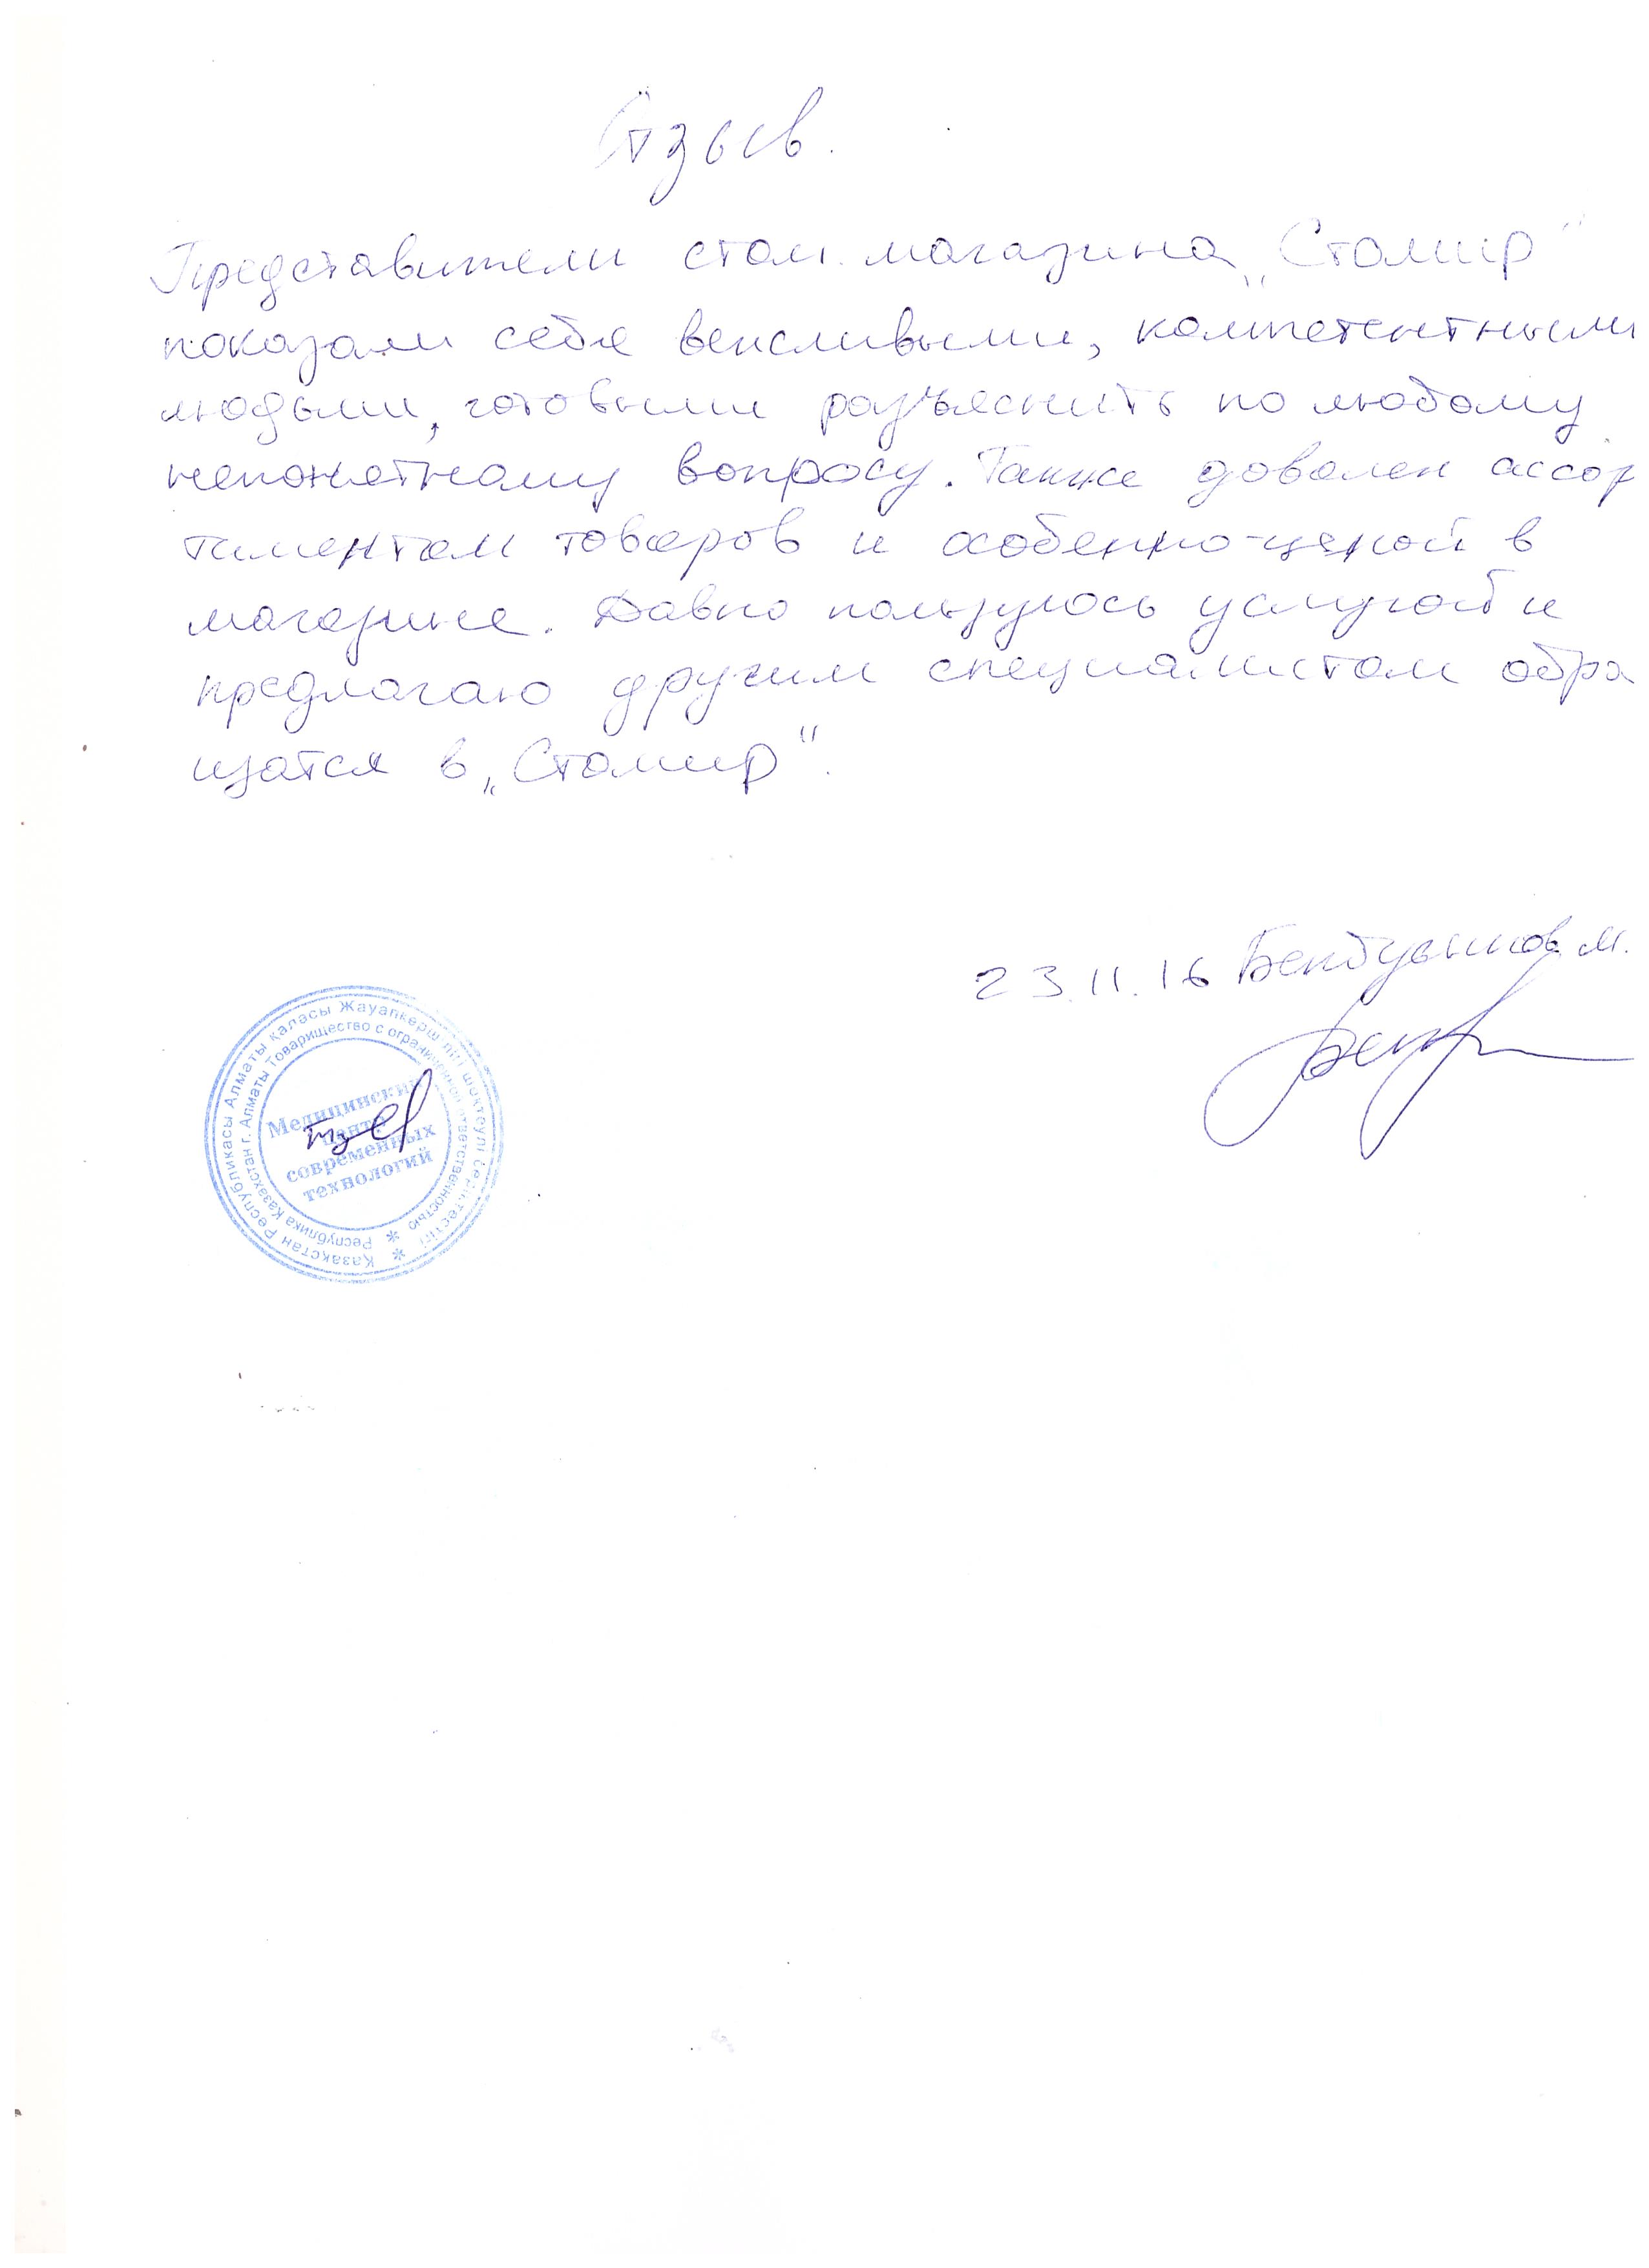 Отзыв.
Представители стом. магазина „Стомир"
показали себя вежливыми, компетентными
людьми, готовыми разъяснить по любому
непонятному вопросу. Также доволен ассор
тиментом товаров и особенно-ценой в
магазине. Давно пользуюсь услугой и
предлагаю другим специалистам обра
щатся в „Стомир".
23.11.16 М.
Қазақстан Республикасы Алматы қаласы Жауапкершілігі шектеулі серіктестігі *
Республика Казахстан г. Алматы Товарищество с ограниченной ответственностью *
Медицинский
центр
современных
технологий